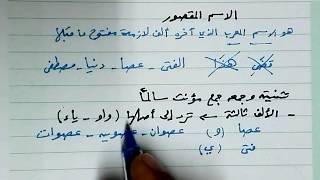 الاسم المقصور
هو الاسم المعرب الذي آخره ألف لازمة مفتوح ما قبلها
هذا الفتى - عصا - دنيا - مصطفى
تثنيته وجمعه جمع مؤنث سالمًا
- الألف ثالثة ترد إلى أصلها (واو - ياء)
عصا (و) عصوان - عصوين - عصوات
فتى (ي)